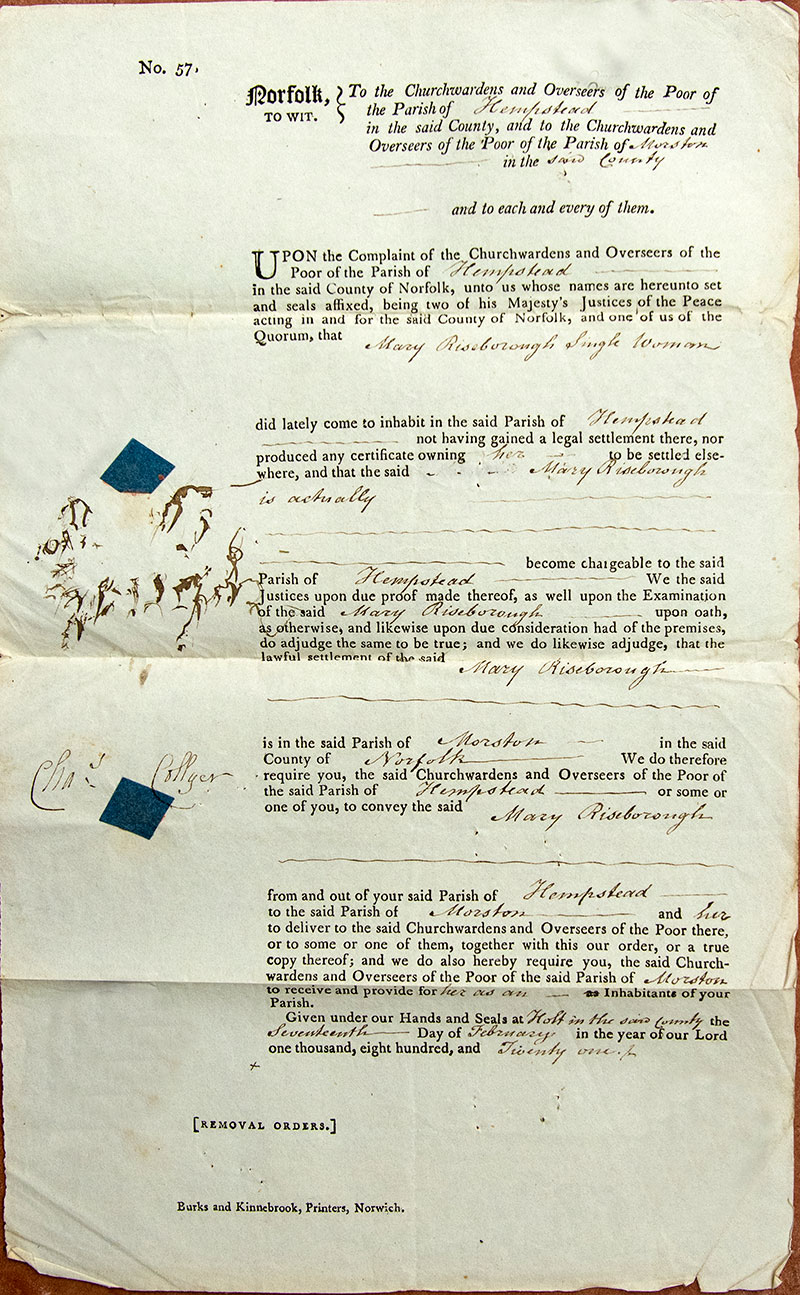 No. 57.
Norfolk, To the Churchwardens and Overseers of the Poor of
TO WIT. the Parish of Hempstead
in the said County, and to the Churchwardens and
Overseers of the Poor of the Parish of Morston
in the said County
and to each and every of them.
UPON the Complaint of the Churchwardens and Overseers of the
Poor of the Parish of Hempstead
in the said County of Norfolk, unto us whose names are hereunto set
and seals affixed, being two of his Majesty's Justices of the Peace
acting in and for the said County of Norfolk, and one of us of the
Quorum, that Mary Riseborough Single Woman
did lately come to inhabit in the said Parish of Hempstead
not having gained a legal settlement there, nor
produced any certificate owning her to be settled else-
where, and that the said Mary Riseborough
is actually
become chargeable to the said
Parish of Hempstead We the said
Justices upon due proof made thereof, as well upon the Examination
of the said Mary Riseborough upon oath,
as otherwise, and likewise upon due consideration had of the premises,
do adjudge the same to be true; and we do likewise adjudge, that the
lawful settlement of the said Mary Riseborough
is in the said Parish of Morston in the said
County of Norfolk We do therefore
require you, the said Churchwardens and Overseers of the Poor of
the said Parish of Hempstead or some or
one of you, to convey the said Mary Riseborough
Chas Collyer
from and out of your said Parish of Hempstead
to the said Parish of Morston and her
to deliver to the said Churchwardens and Overseers of the Poor there,
or to some or one of them, together with this our order, or a true
copy thereof; and we do also hereby require you, the said Church-
wardens and Overseers of the Poor of the said Parish of Morston
to receive and provide for her as an Inhabitants of your
Parish.
Given under our Hands and Seals at Holt in the said County the
Seventeenth Day of February in the year of our Lord
one thousand, eight hundred, and Twenty one.
[REMOVAL ORDERS.]
Burks and Kinnebrook, Printers, Norwich.